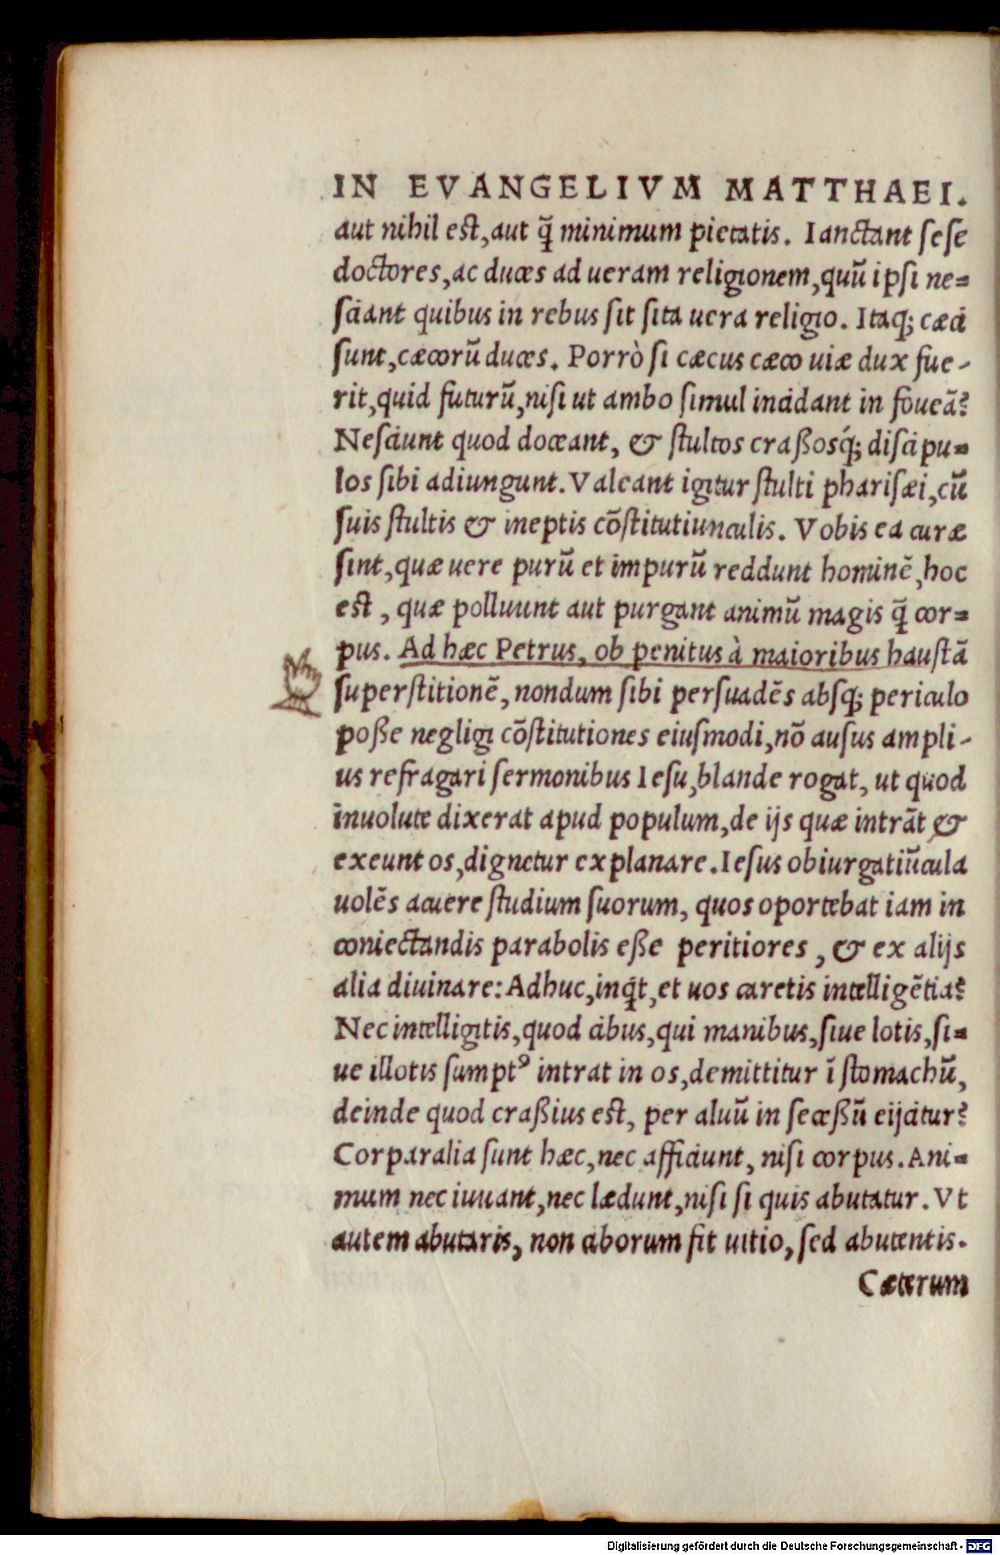 IN EVANGELIVM MATTHAEI.
aut nihil est, aut q̃ minimum pietatis. Ianctant sese
doctores, ac duces ad ueram religionem, quũ ipsi ne=
sciant quibus in rebus sit sita uera religio. Itaq; cæci
sunt, cæcorũ duces. Porrò si cæcus cæco uiæ dux fue-
rit, quid futurũ, nisi ut ambo simul incidant in foueã?
Nesciunt quod doceant, & stultos craßosq́; discipu=
los sibi adiungunt. Valeant igitur stulti pharisæi, cũ
suis stultis & ineptis cõstitutiunculis. Vobis ea curæ
sint, quæ uere purũ et impurũ reddunt hominẽ, hoc
est, quæ polluunt aut purgant animũ magis q̃ cor=
pus. Ad hæc Petrus, ob penitus à maioribus haustã
superstitionẽ, nondum sibi persuadẽs absq; periculo
poße negligi cõstitutiones eiusmodi, nõ ausus ampli-
us refragari sermonibus Iesu, blande rogat, ut quod
inuolute dixerat apud populum, de ijs quæ intrãt &
exeunt os, dignetur explanare. Iesus obiurgatiũcula
uolẽs acuere studium suorum, quos oportebat iam in
coniectandis parabolis eße peritiores, & ex alijs
alia diuinare: Adhuc, inq́t, et uos caretis intelligẽtia?
Nec intelligitis, quod cibus, qui manibus, siue lotis, si=
ue illotis sumptꝰ intrat in os, demittitur ĩ stomachũ,
deinde quod craßius est, per aluũ in seceßũ eijcitur?
Corparalia sunt hæc, nec afficiunt, nisi corpus. Ani=
mum nec iuuant, nec lædunt, nisi si quis abutatur. Vt
autem abutaris, non ciborum fit uitio, sed abutentis.
Cæterum
Digitalisierung gefördert durch die Deutsche Forschungsgemeinschaft - DFG